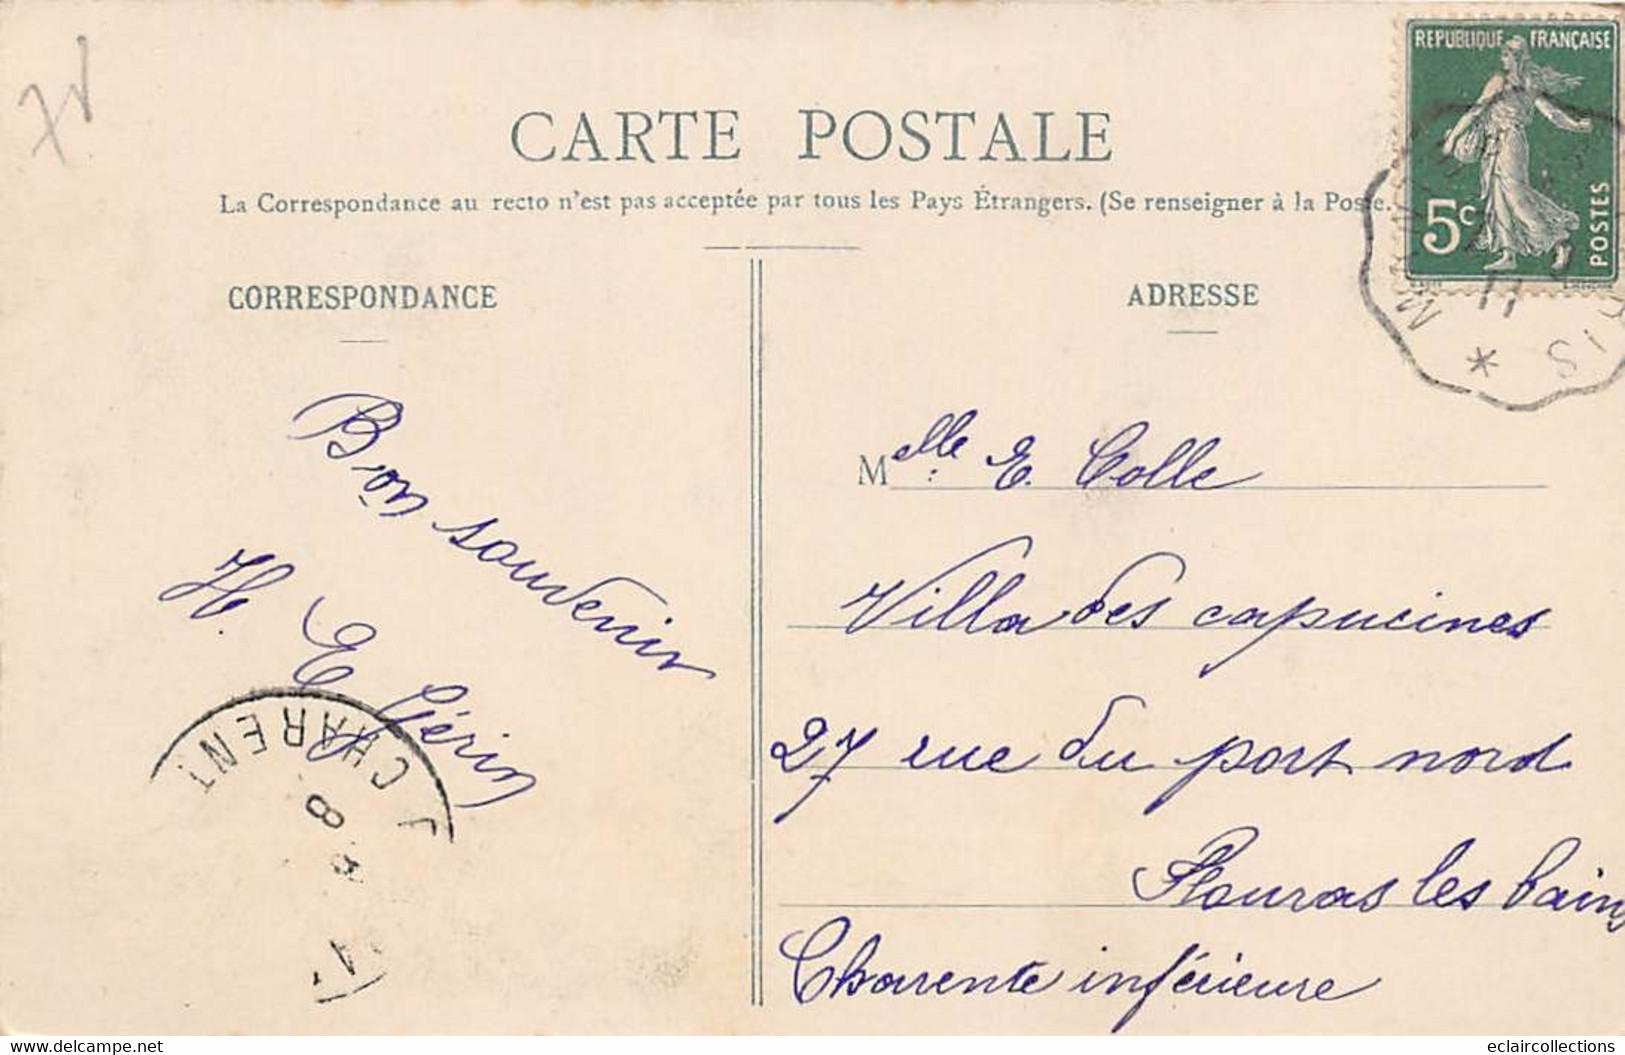 CARTE POSTALE
La Correspondance au recto n'est pas acceptée par tous les Pays Étrangers. (Se renseigner à la Poste.
REPUBLIQUE FRANÇAISE
5c
POSTES
CORRESPONDANCE
ADRESSE
Bon souvenir
Melle: E. Colle
Villa des capucines
27 rue du port nord
Flouras les bains
Charente inférieure
CHARENT
8
11
eclaircollections